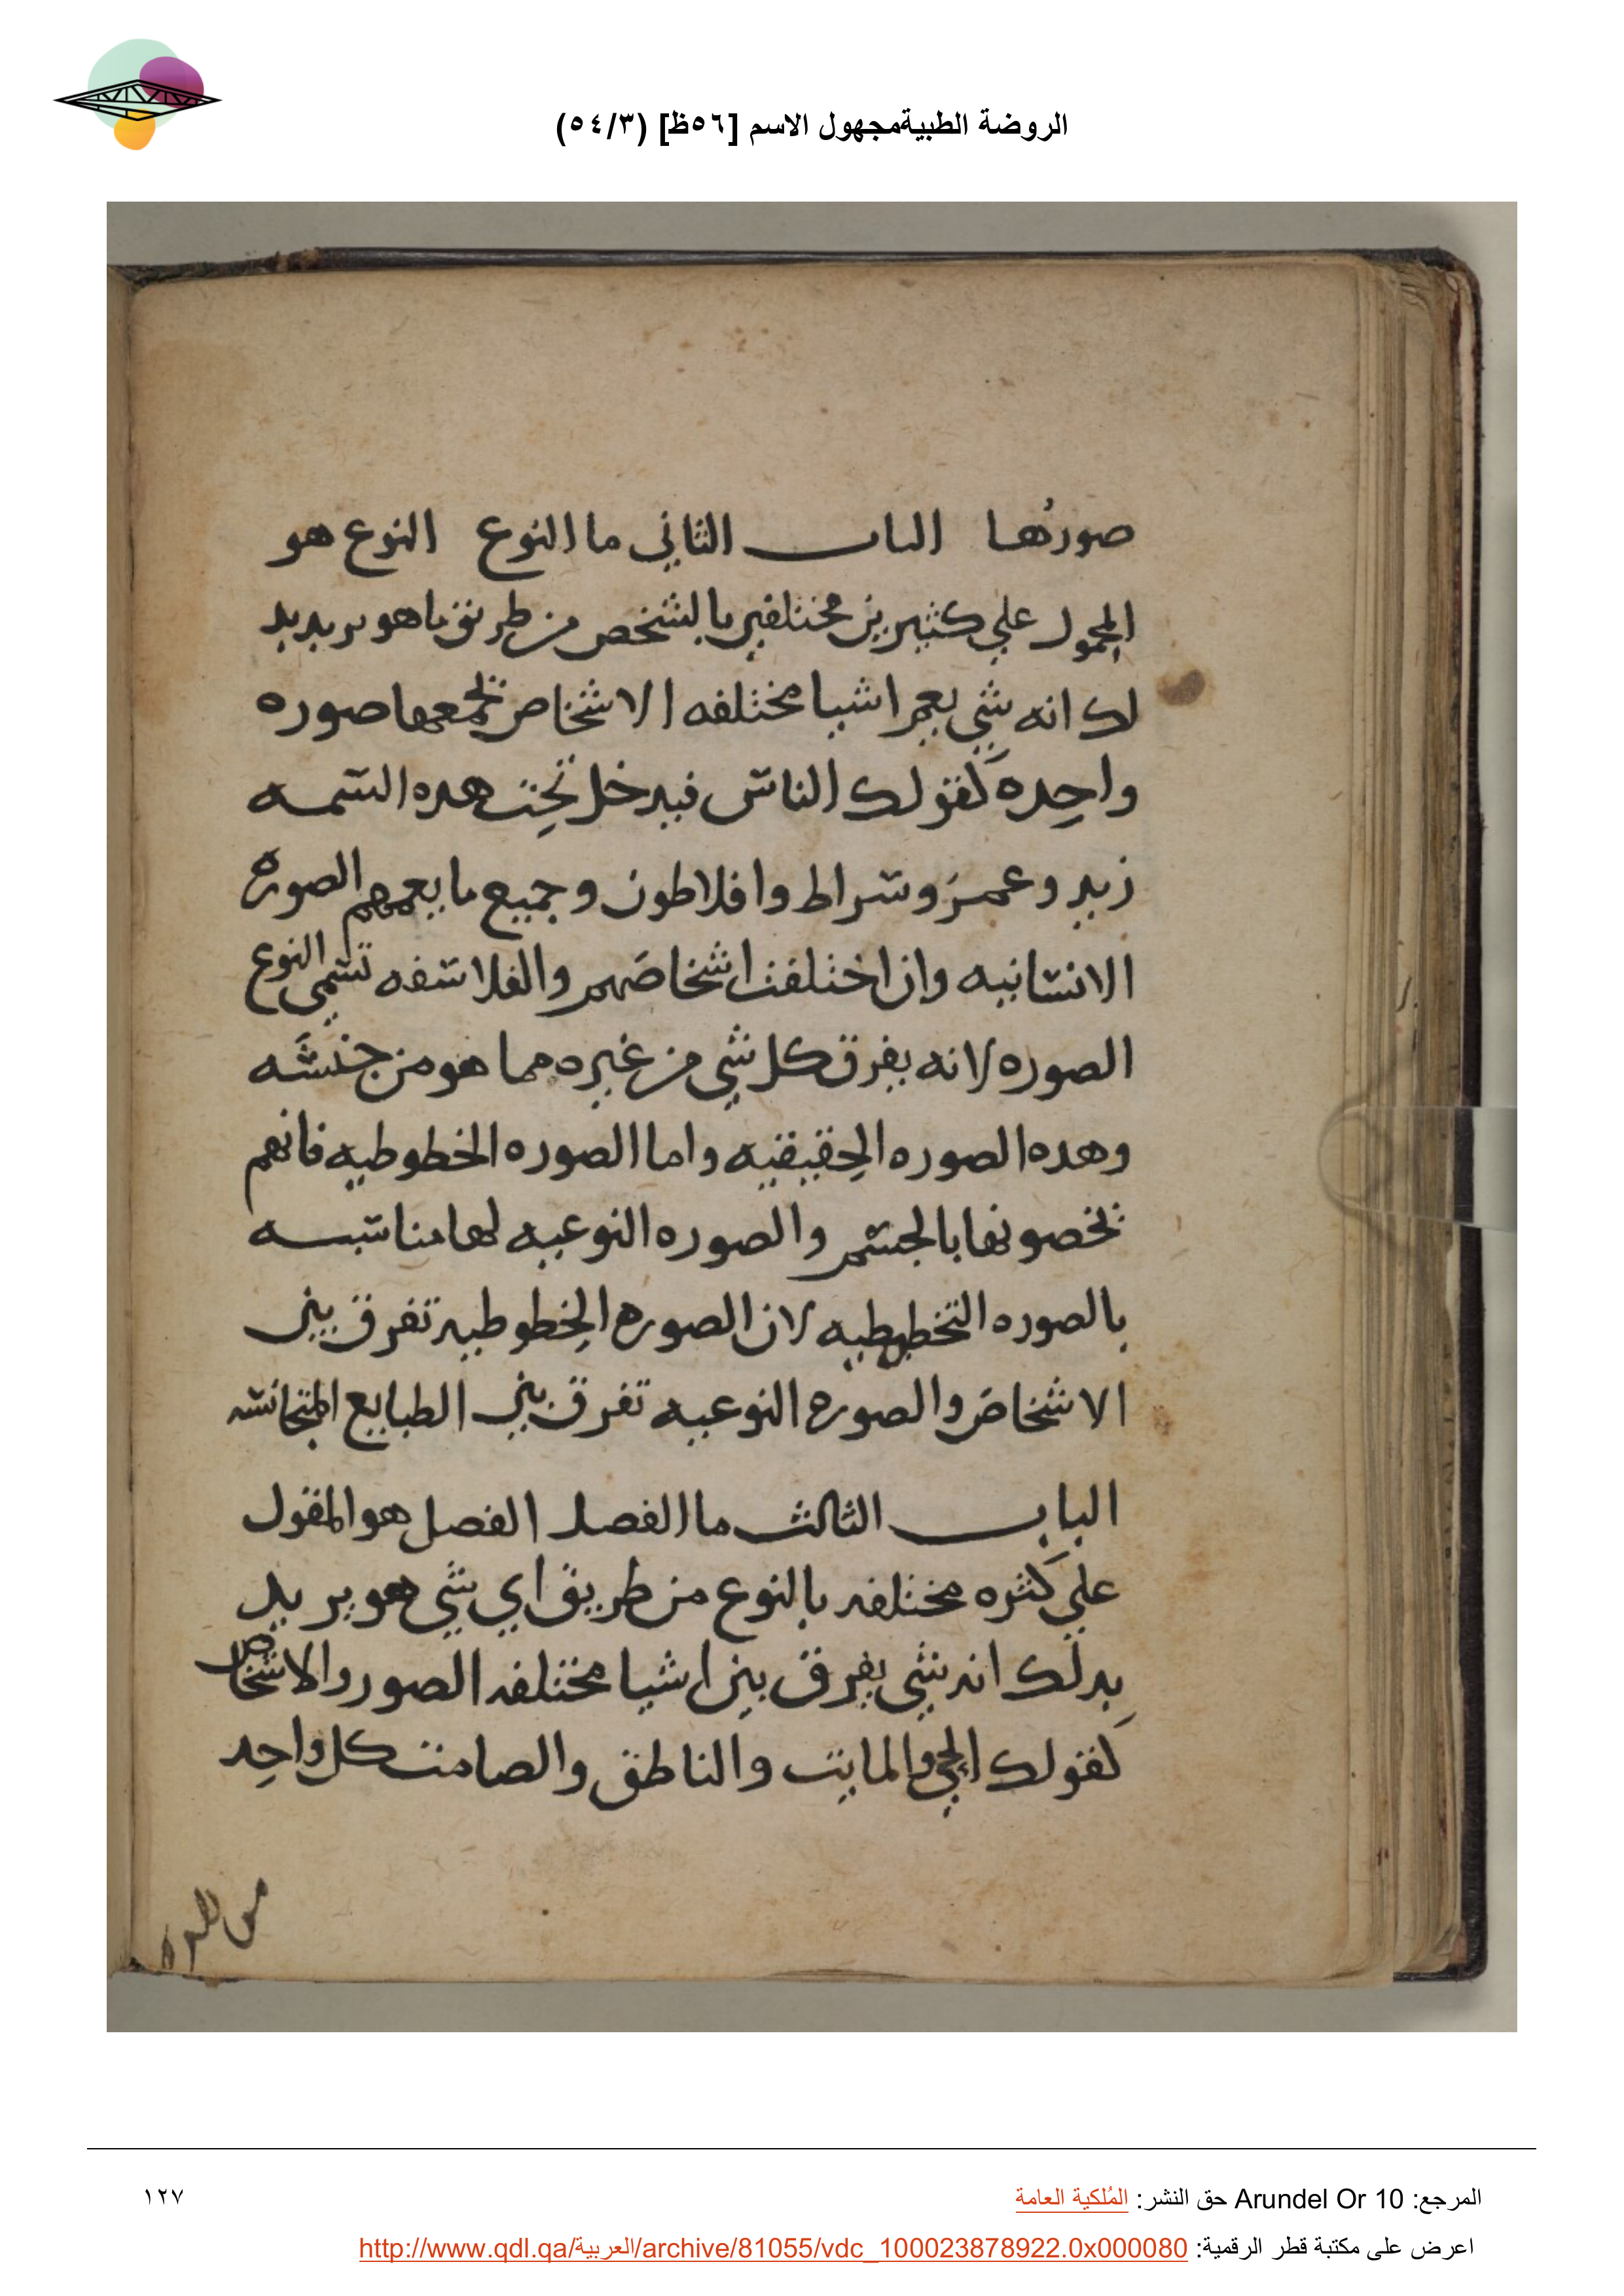 الروضة الطبيةمجهول الاسم [٥٦ظ] (٥٤/٣)
صورتها الباب الثاني ما النوع النوع هو
المحمول علي كثيرين مختلفين بالشخص من طريق ما هو يريد
لك انه شي يعم اشيا مختلفه الاشخاص تجمعها صوره
واحده كقولك الناس فيدخل تحت هده السمه
زيد وعمرو وسقراط وافلاطون وجميع ما يعمهم الصوره
الانسانيه وان اختلفت اشخاصهم والفلاسفه تسمي النوع
الصوره لانه يفرق كل شي من غيره مما هو من جنسه
وهده الصوره الحقيقيه واما الصوره الخطوطيه فانهم
يخصونها بالجسم والصوره النوعيه لها مناسبه
بالصوره التخطيطيه لان الصوره الخطوطيه تفرق بين
الاشخاص والصوره النوعيه تفرق بين الطبايع المتجانسه
الباب الثالث ما الفصل الفصل هو المقول
علي كثره مختلفه بالنوع من طريق اي شي هو يريد
بدلك انه شي يفرق بين اشيا مختلفه الصور والاشخاص
كقولك الحي والمايت والناطق والصامت كل واحد
المرجع: Arundel Or 10 حق النشر: المُلكية العامة
١٢٧
اعرض على مكتبة قطر الرقمية: http://www.qdl.qa/العربية/archive/81055/vdc_100023878922.0x000080